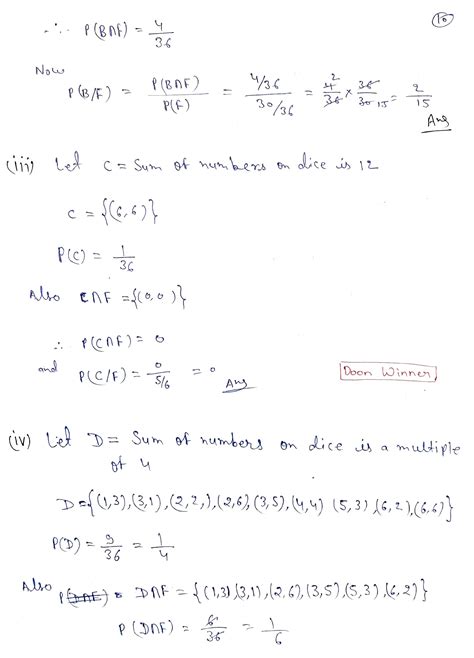 10
∴ P(B∩F) = 4/36
Now
P(B/F) = P(B∩F)/P(F) = (4/36)/(30/36) = 4/36 × 36/30 = 2/15
2
15
Ans
(iii) Let C = Sum of numbers on dice is 12
C = {(6,6)}
P(C) = 1/36
Also C∩F = {(0,0)}
∴ P(C∩F) = 0
and P(C/F) = 0/(5/6) = 0 Ans
Doon Winner
(iv) Let D = Sum of numbers on dice is a multiple
of 4
D = {(1,3),(3,1),(2,2,),(2,6),(3,5),(4,4) (5,3),(6,2),(6,6)}
P(D) = 9/36 = 1/4
Also P(D∩F) = D∩F = {(1,3),(3,1),(2,6),(3,5),(5,3),(6,2)}
P(D∩F) = 6/36 = 1/6